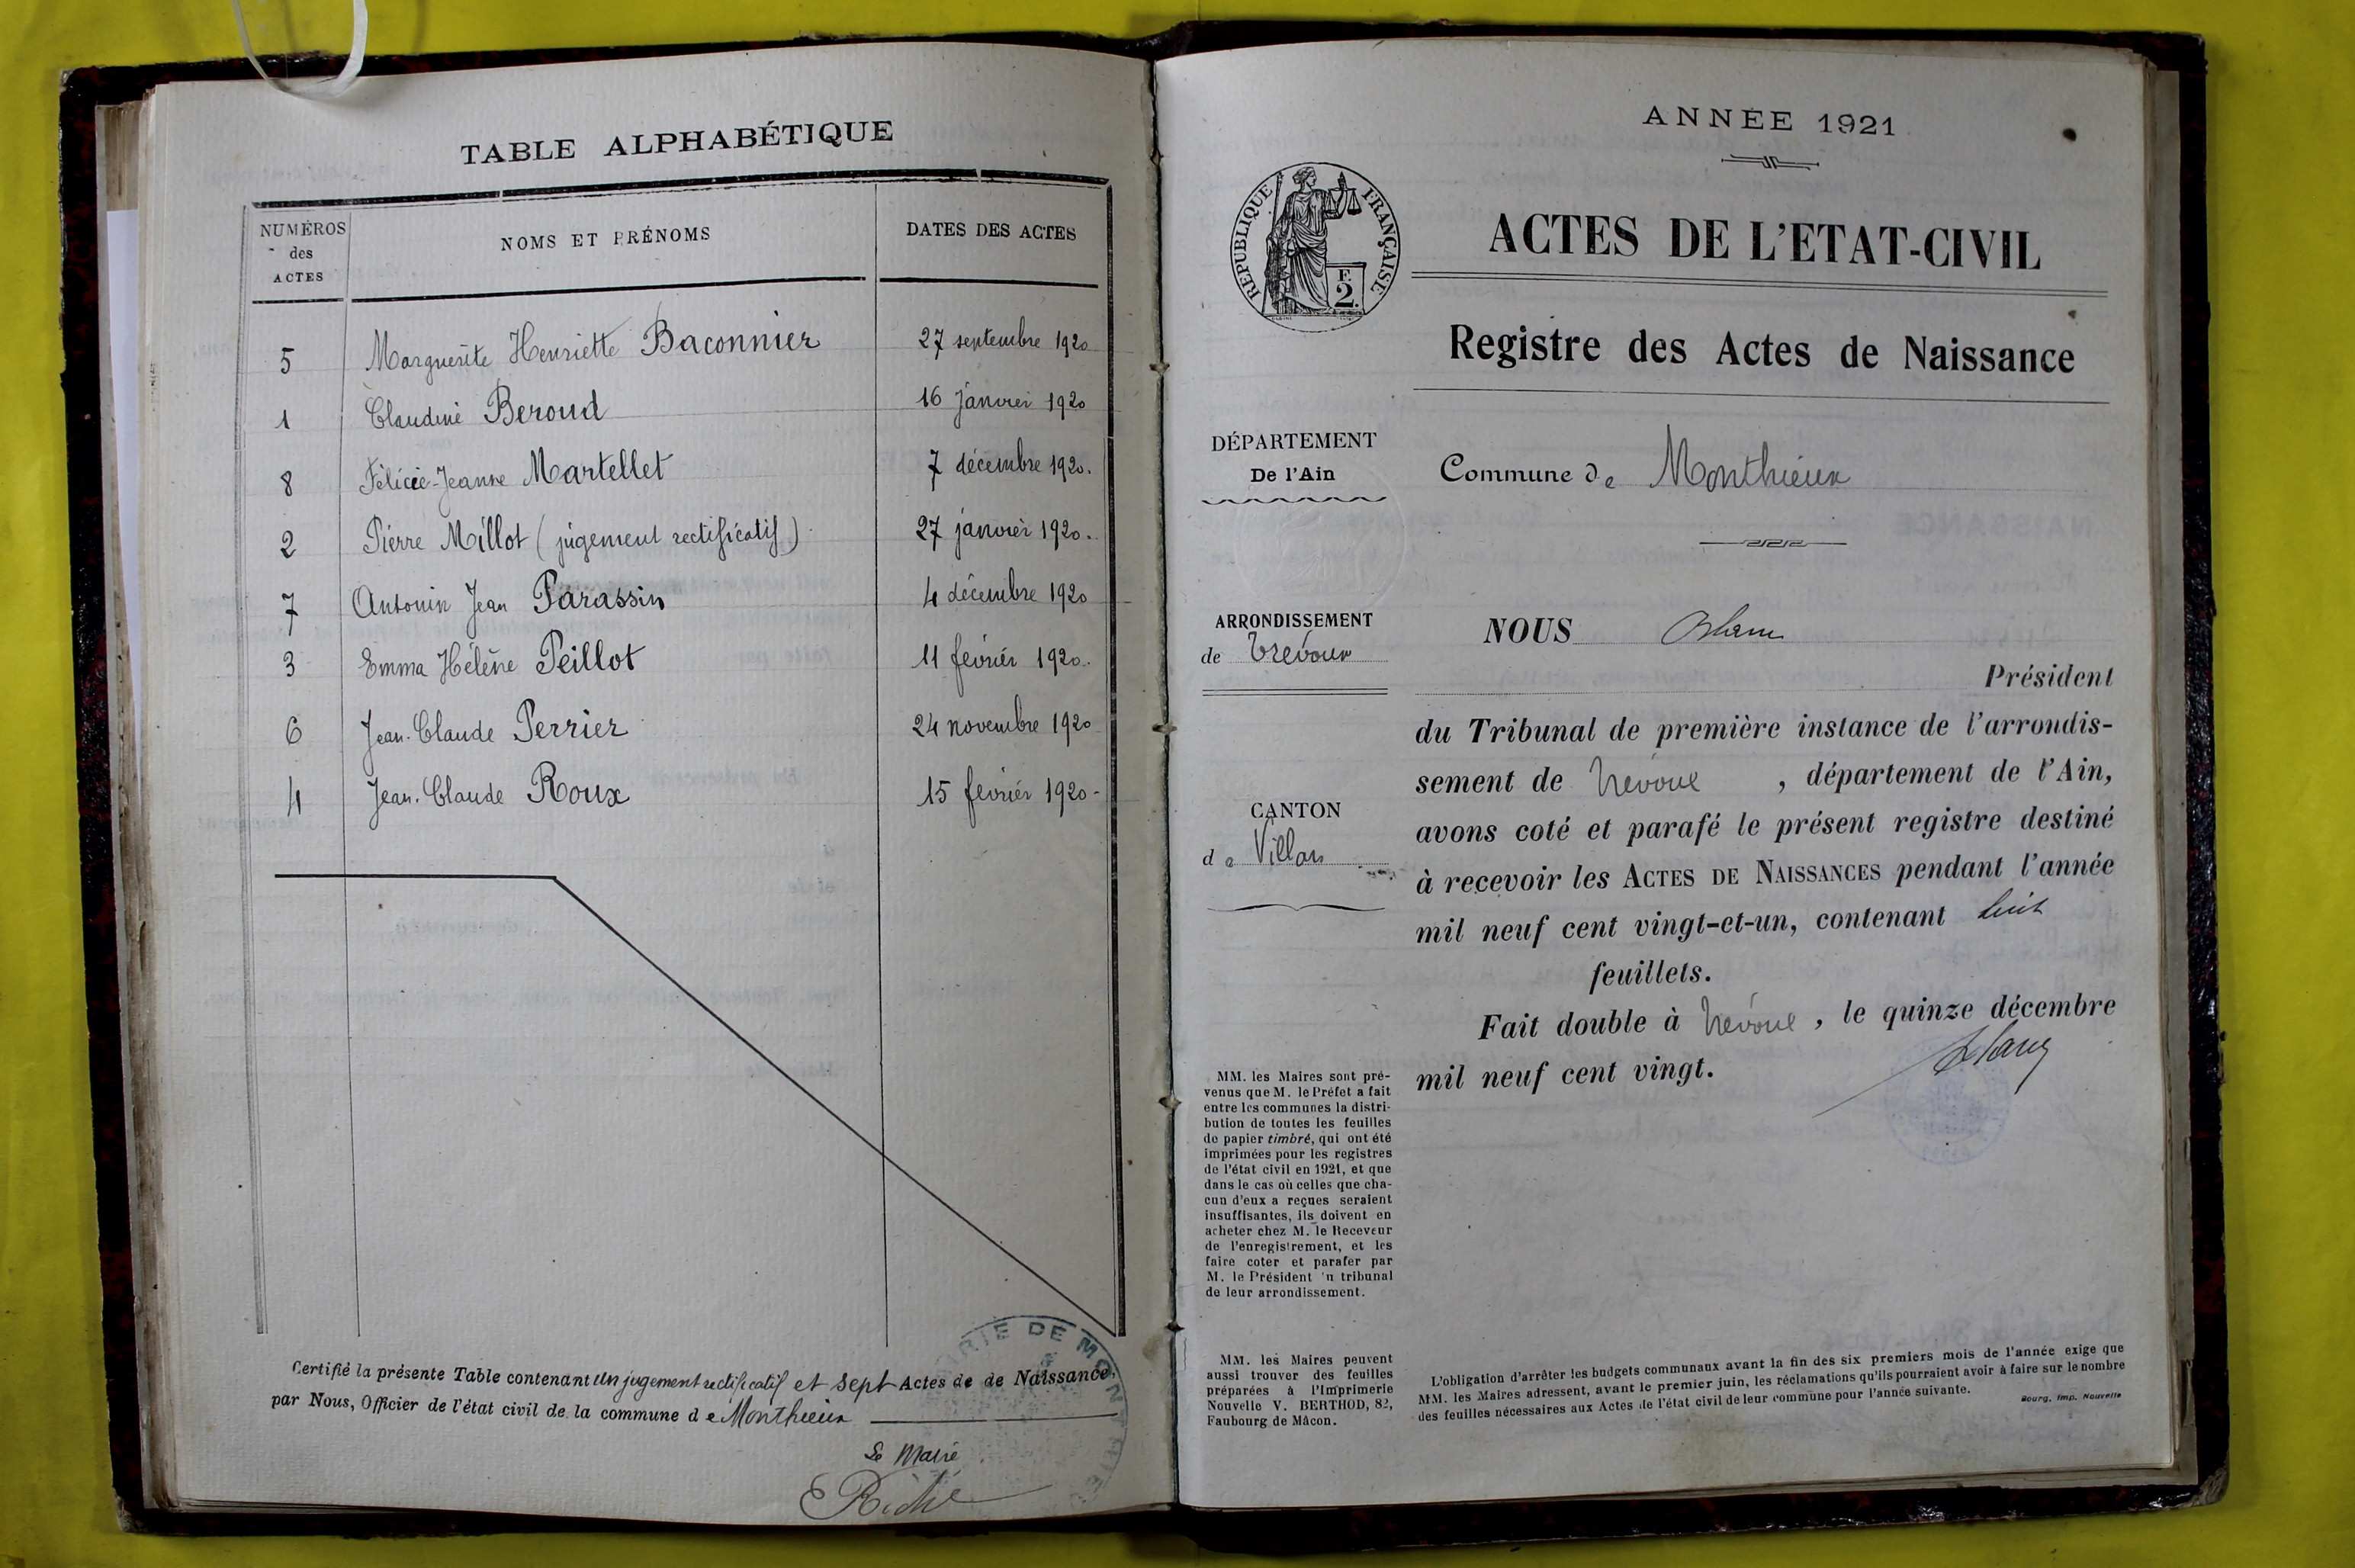 TABLE ALPHABÉTIQUE
NUMÉROS des ACTES
NOMS ET PRÉNOMS
DATES DES ACTES
5 Marguerite Henriette Baconnier 27 septembre 1920
1 Claudine Beroud 16 janvier 1920
8 Félicie-Jeanne Martellet 7 décembre 1920.
2 Pierre Millot (jugement rectificatif) 27 janvier 1920.
7 Antonin Jean Parassin 4 décembre 1920
3 Emma Hélène Peillot 11 février 1920.
6 Jean-Claude Perrier 24 novembre 1920
4 Jean-Claude Roux 15 février 1920-
Certifié la présente Table contenant un jugement rectificatif et sept Actes de de Naissance
par Nous, Officier de l'état civil de la commune de Monthieux
Le Maire
E Riche
MAIRIE DE MONTHIEUX
ANNÉE 1921
RÉPUBLIQUE FRANÇAISE
F.
2.
ACTES DE L'ETAT-CIVIL
Registre des Actes de Naissance
DÉPARTEMENT
De l'Ain
Commune de Monthieux
ARRONDISSEMENT
de Trévoux
CANTON
de Villars
NOUS Blanc
Président
du Tribunal de première instance de l'arrondis-
sement de Trévoux, département de l'Ain,
avons coté et parafé le présent registre destiné
à recevoir les ACTES DE NAISSANCES pendant l'année
mil neuf cent vingt-et-un, contenant huit
feuillets.
Fait double à Trévoux, le quinze décembre
mil neuf cent vingt.
Blanc
MM. les Maires sont pré-
venus que M. le Préfet a fait
entre les communes la distri-
bution de toutes les feuilles
de papier timbré, qui ont été
imprimées pour les registres
de l'état civil en 1921, et que
dans le cas où celles que cha-
cun d'eux a reçues seraient
insuffisantes, ils doivent en
acheter chez M. le Receveur
de l'enregistrement, et les
faire coter et parafer par
M. le Président 'u tribunal
de leur arrondissement.
MM. les Maires peuvent
aussi trouver des feuilles
préparées à l'Imprimerie
Nouvelle V. BERTHOD, 82,
Faubourg de Mâcon.
L'obligation d'arrêter les budgets communaux avant la fin des six premiers mois de l'année exige que
MM. les Maires adressent, avant le premier juin, les réclamations qu'ils pourraient avoir à faire sur le nombre
des feuilles nécessaires aux Actes de l'état civil de leur commune pour l'année suivante.
Bourg, Imp. Nouvelle